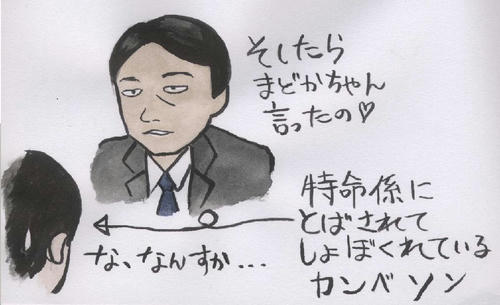 そしたら
まどかちゃん
言ったの♡
特命係に
とばされて
しょぼくれている
カンベ ソン
な、なんすか...